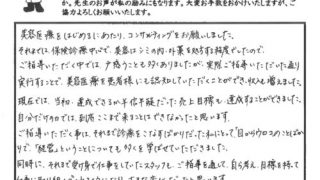 か。先生のお声が私の励みになります。大変お手数をおかけいたしますが、ご
協力よろしくお願いいたします。
美容医療をはじめるにあたり、コンサルティングをお願いしました。
それまでは保険診療中心で、美容はシミの内・外薬を処方する程度でしたので、
ご指導いただく中では、戸惑うことも多くありましたが、実際、ご指導いただいた通り
実行することで、美容医療を患者様にも認知していただくことができ、収入も増えました。
現在では、当初、達成できるか半信半疑だった売上目標も、達成することができました。
自分だけの力では、到底ここまで来ることはできなかったと思います。
ご指導いただく事は、それまで診療をこなすばかりだった私にとって、目からウロコのことばか
りで、「経営」ということについても多くを学ばせていただきました。
同時に、それまで受け身で仕事をしていたスタッフも、ご指導を通して、自ら考え、目標を持って